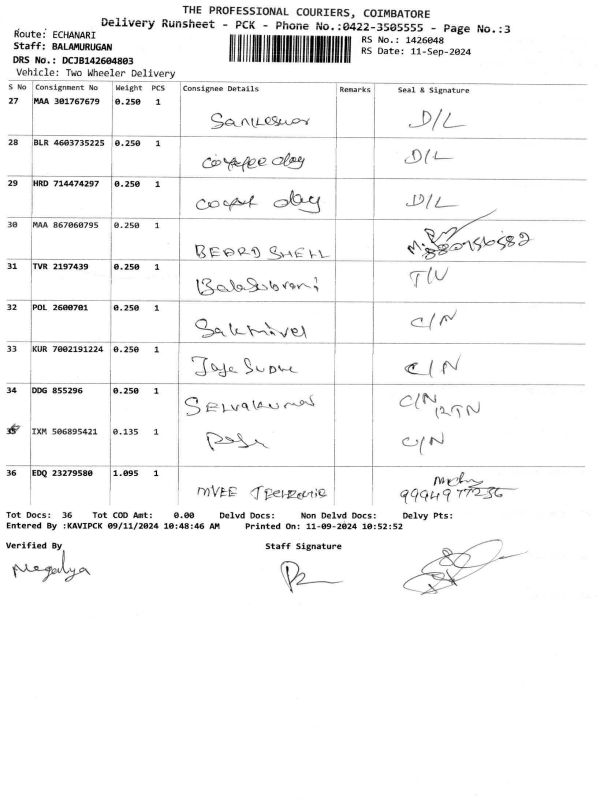 THE PROFESSIONAL COURIERS, COIMBATORE
Delivery Runsheet - PCK - Phone No.:0422-3505555 - Page No.:3
Route: ECHANARI
RS No.: 1426048
Staff: BALAMURUGAN
RS Date: 11-Sep-2024
DRS No.: DCJB142604803
Vehicle: Two Wheeler Delivery
S No Consignment No Weight PCS Consignee Details Remarks Seal & Signature
27 MAA 301767679 0.250 1
D/L
28 BLR 4603735225 0.250 1
day D/L
29 HRD 714474297 0.250 1
day D/L
30 MAA 867060795 0.250 1
BEARD SHELL
31 TVR 2197439 0.250 1
32 POL 2600701 0.250 1
Sakthivel C/N
33 KUR 7002191224 0.250 1
C/N
34 DDG 855296 0.250 1
Selvakumar C/N
35 IXM 506895421 0.135 1
C/N
36 EDQ 23279580 1.095 1
MVEE
Tot Docs: 36 Tot COD Amt: 0.00 Delvd Docs: Non Delvd Docs: Delvy Pts:
Entered By :KAVIPCK 09/11/2024 10:48:46 AM Printed On: 11-09-2024 10:52:52
Verified By Staff Signature